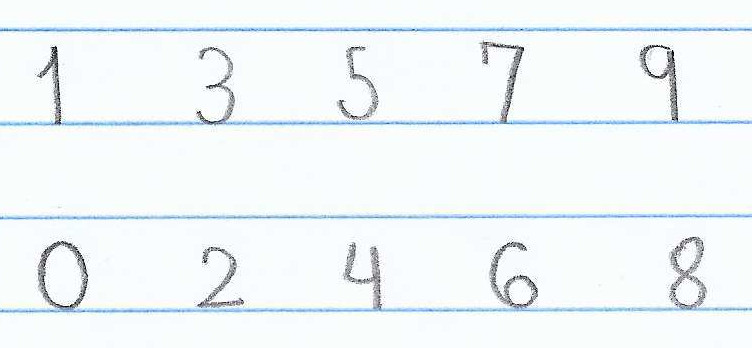 1 3 5 7 9
0 2 4 6 8